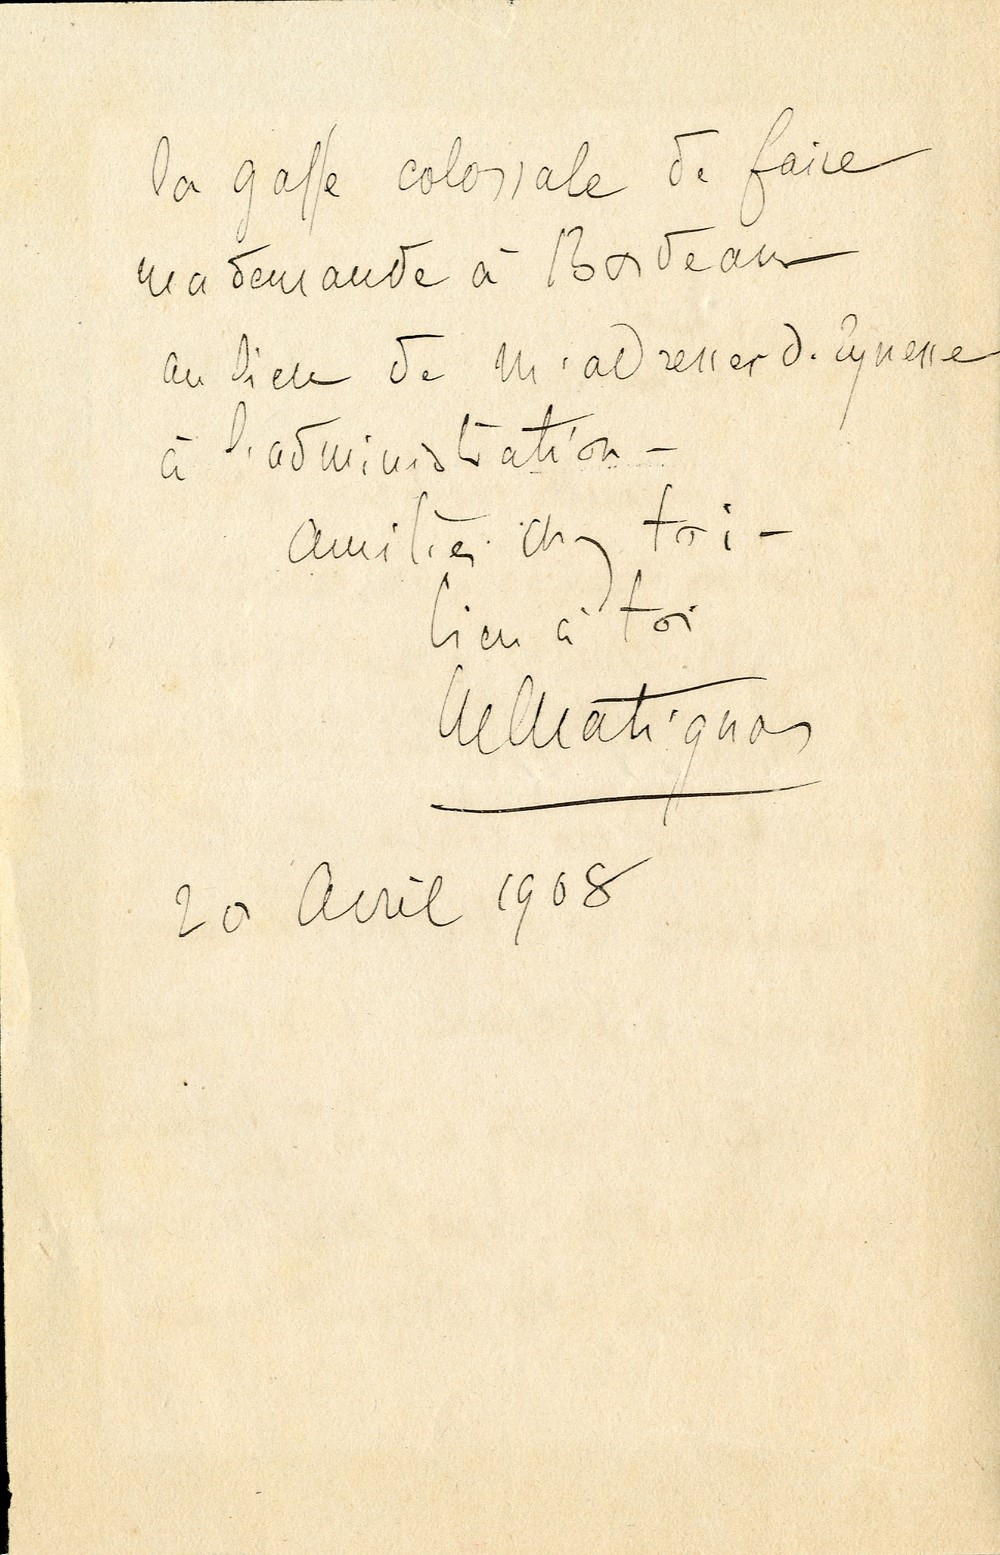 la gaffe colossale de faire
ma demande à Bordeaux
au lieu de m'adresser d'Eynesse
à l'administration –
amitiés chez toi –
bien à toi
Matignon
20 Avril 1908